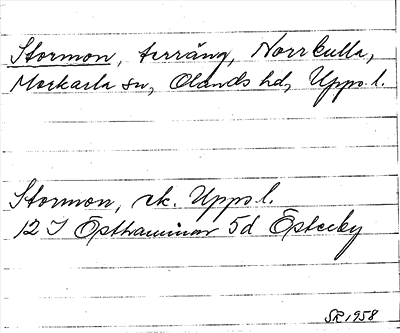 Stormon, terräng, Norrkulla,
Morkarla sn, Olands hd, Upps. l.
Stormon, ek. Upps l.
12 I Östhammar 5d Österby
SR 1958